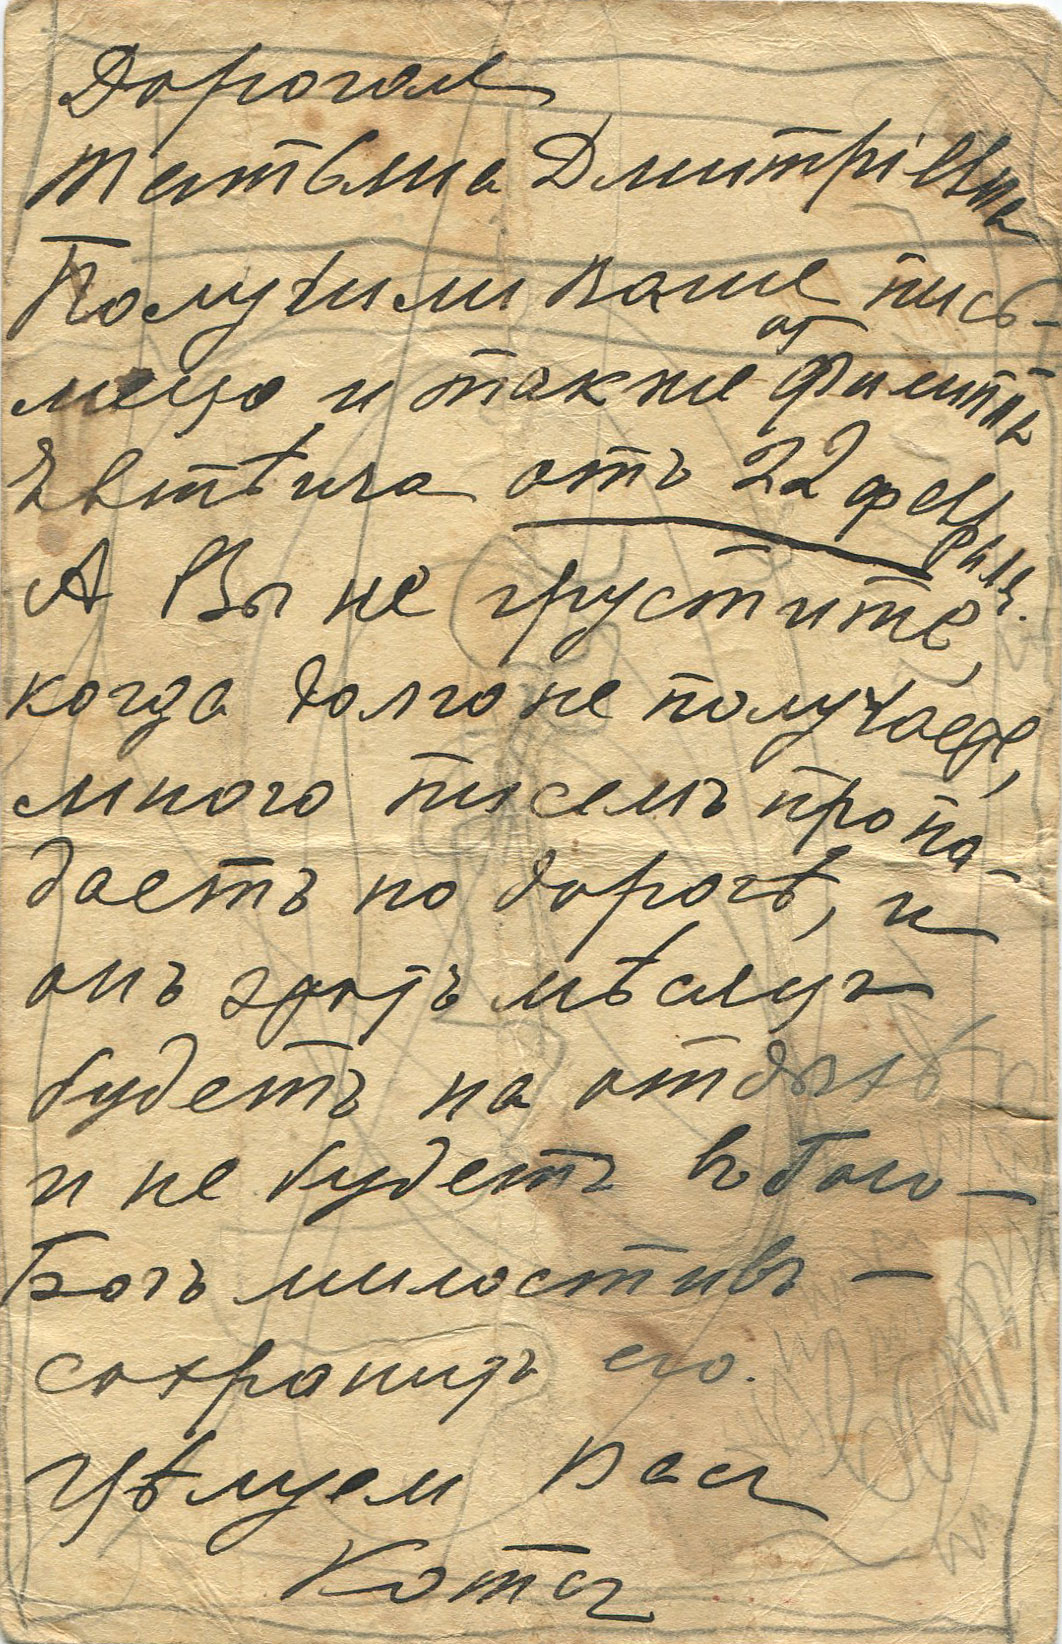 Дорогая
Татьяна Дмитріевна
Получили Ваше пись-
мецо и также от
Евтѣича отъ 22 февраля.
А Вы не грустите,
когда долго не получаете,
много писемъ пропа-
даетъ по дорогѣ, и
онъ этотъ мѣсяцъ
будетъ на отдыхѣ
и не будетъ въ бою —
Богъ милостивъ —
сохранитъ его.
Цѣлуем Вас